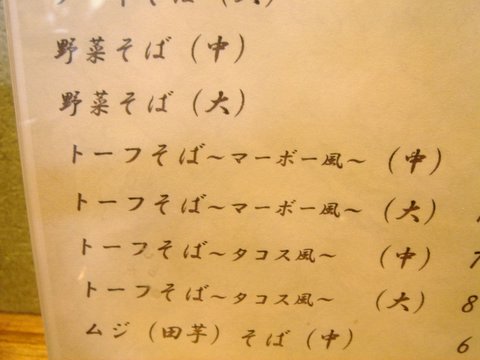 そば（大）
野菜そば（中）
野菜そば（大）
トーフそば～マーボー風～（中）
トーフそば～マーボー風～（大）
トーフそば～タコス風～（中） 7
トーフそば～タコス風～（大） 8
ムジ（田芋）そば（中） 6